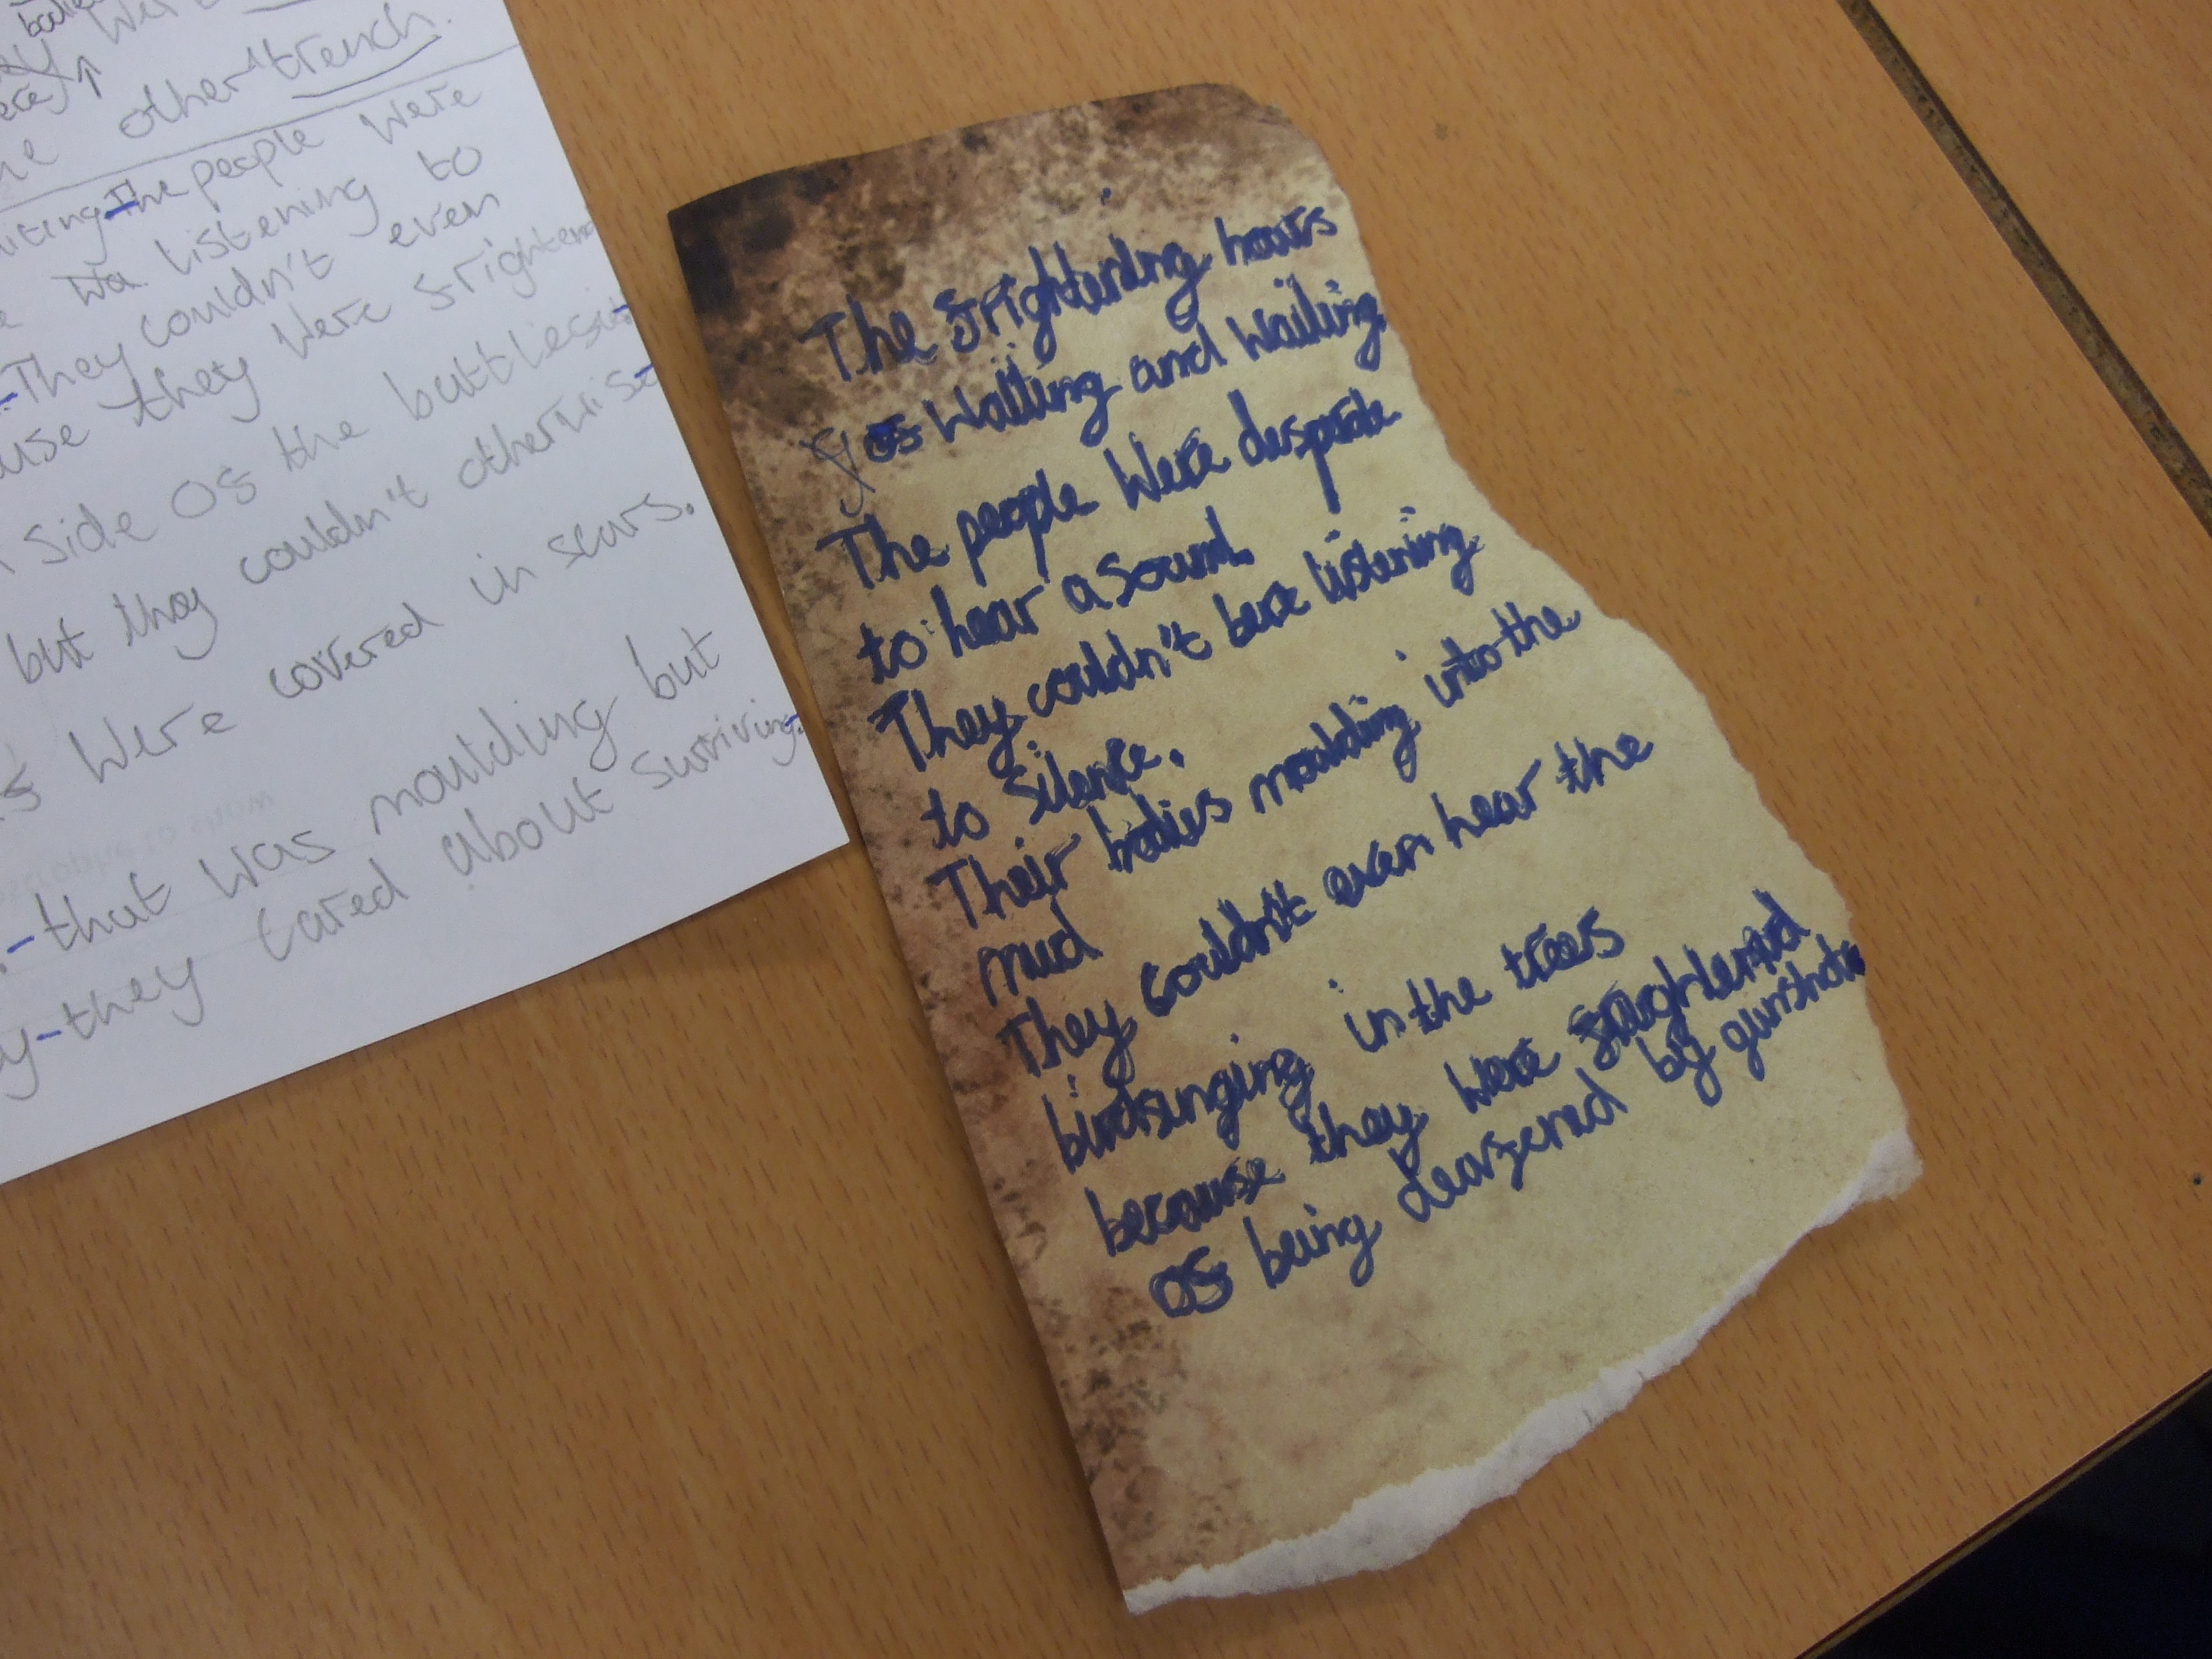 other trench.
The people were
listening to
They couldn't even
they were frighten
side of the battlesit
but they couldn't otherwise
were covered in scars.
that was moulding but
they cared about surviving.
The frightening hours
of waiting and waiting
The people were desprate
to hear a sound.
They couldn't bere listening
to silence.
Their bodies moulding into the
mud
They couldn't even hear the
birdsinging in the trees
because they were frightened
of being deafened by gunshots